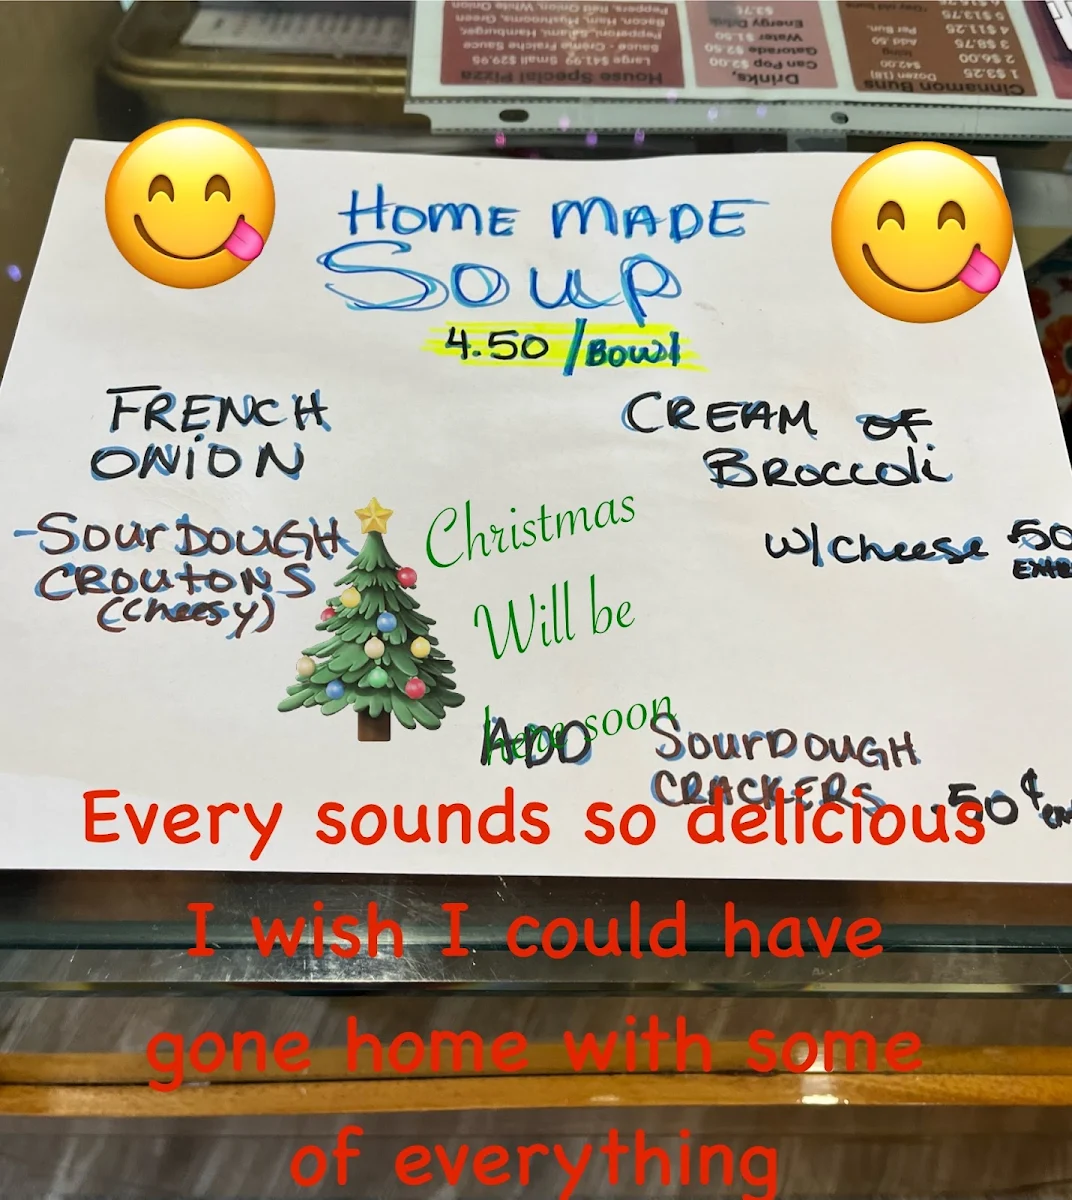 House Special Pizza
Sauce - Crème Fraiche Sauce
Pepperoni, Salami, Hamburger,
Bacon, Ham, Mushrooms, Green
Peppers, Red Onion, White Onion
Drinks,
Can Pop $2.00
Gatorade $2.50
Water $1.50
Energy Drink
$3.75
Cinnamon Buns
1 $3.25 Dozen (18)
2 $6.00 $42.00
3 $8.75
4 $11.25 Add .50
5 $13.75 Per Bun.
HOME MADE
SOUP
4.50 / BOWL
FRENCH
ONION
-SOURDOUGH
CROUTONS
(cheesy)
CREAM OF
BROCCOLI
w/ cheese .50
Christmas
Will be
here soon
ADD SOURDOUGH
CRACKERS .50¢
Every sounds so delicious
I wish I could have
gone home with some
of everything